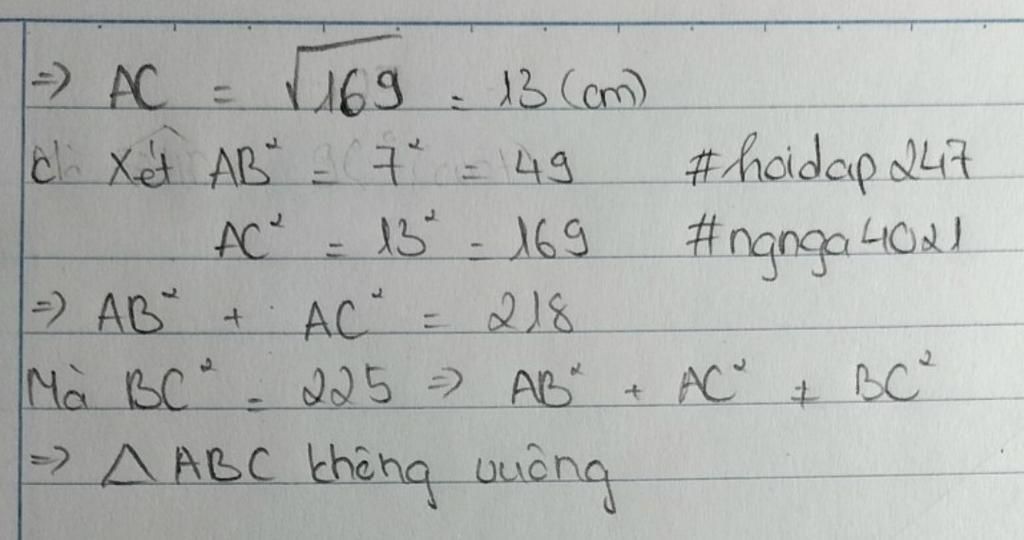 => AC = √169 = 13 (cm)
c) Xét AB² = 7² = 49 #hoidap247
AC² = 13² = 169 #ngnga4021
=> AB² + AC² = 218
Mà BC² = 225 => AB² + AC² ≠ BC²
=> △ ABC không vuông